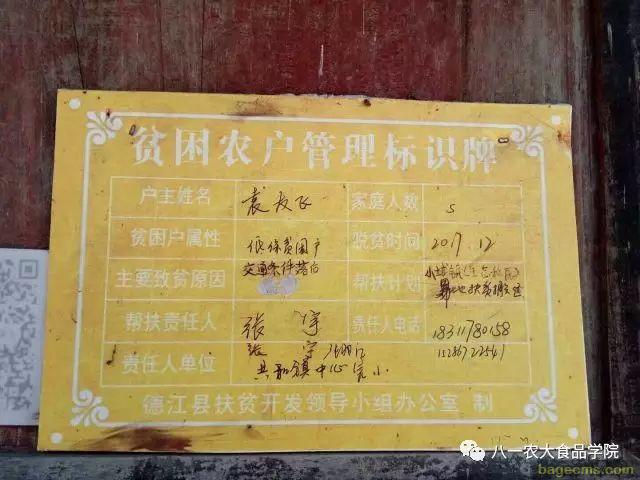 贫困农户管理标识牌
户主姓名 袁友飞 家庭人数 5
贫困户属性 低保贫困户 脱贫时间 2017.12
主要致贫原因 交通条件落后 帮扶计划 小城镇
易地扶贫搬迁
帮扶责任人 张宇 责任人电话 18311780158
责任人单位 张宇
共和镇中心完小
德江县扶贫开发领导小组办公室 制
八一农大食品学院
bagecms.com